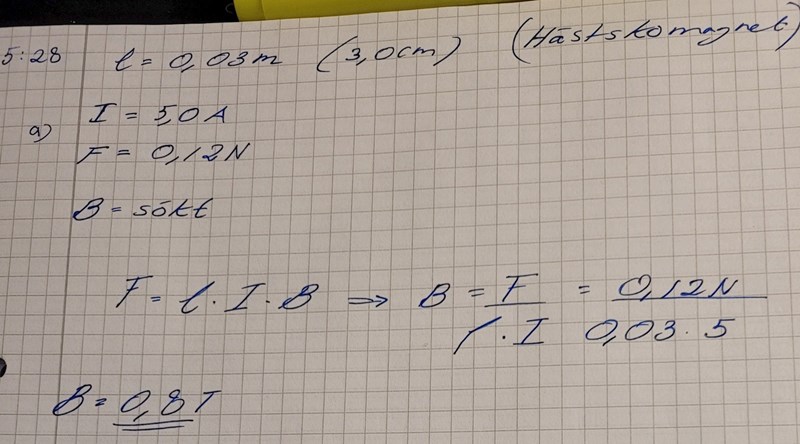 5:28 l = 0,03m (3,0cm) (Hästskomagnet)
a) I = 5,0A
F = 0,12N
B = sökt
F = l · I · B => B = F / l · I = 0,12N / 0,03 · 5
B = 0,8T